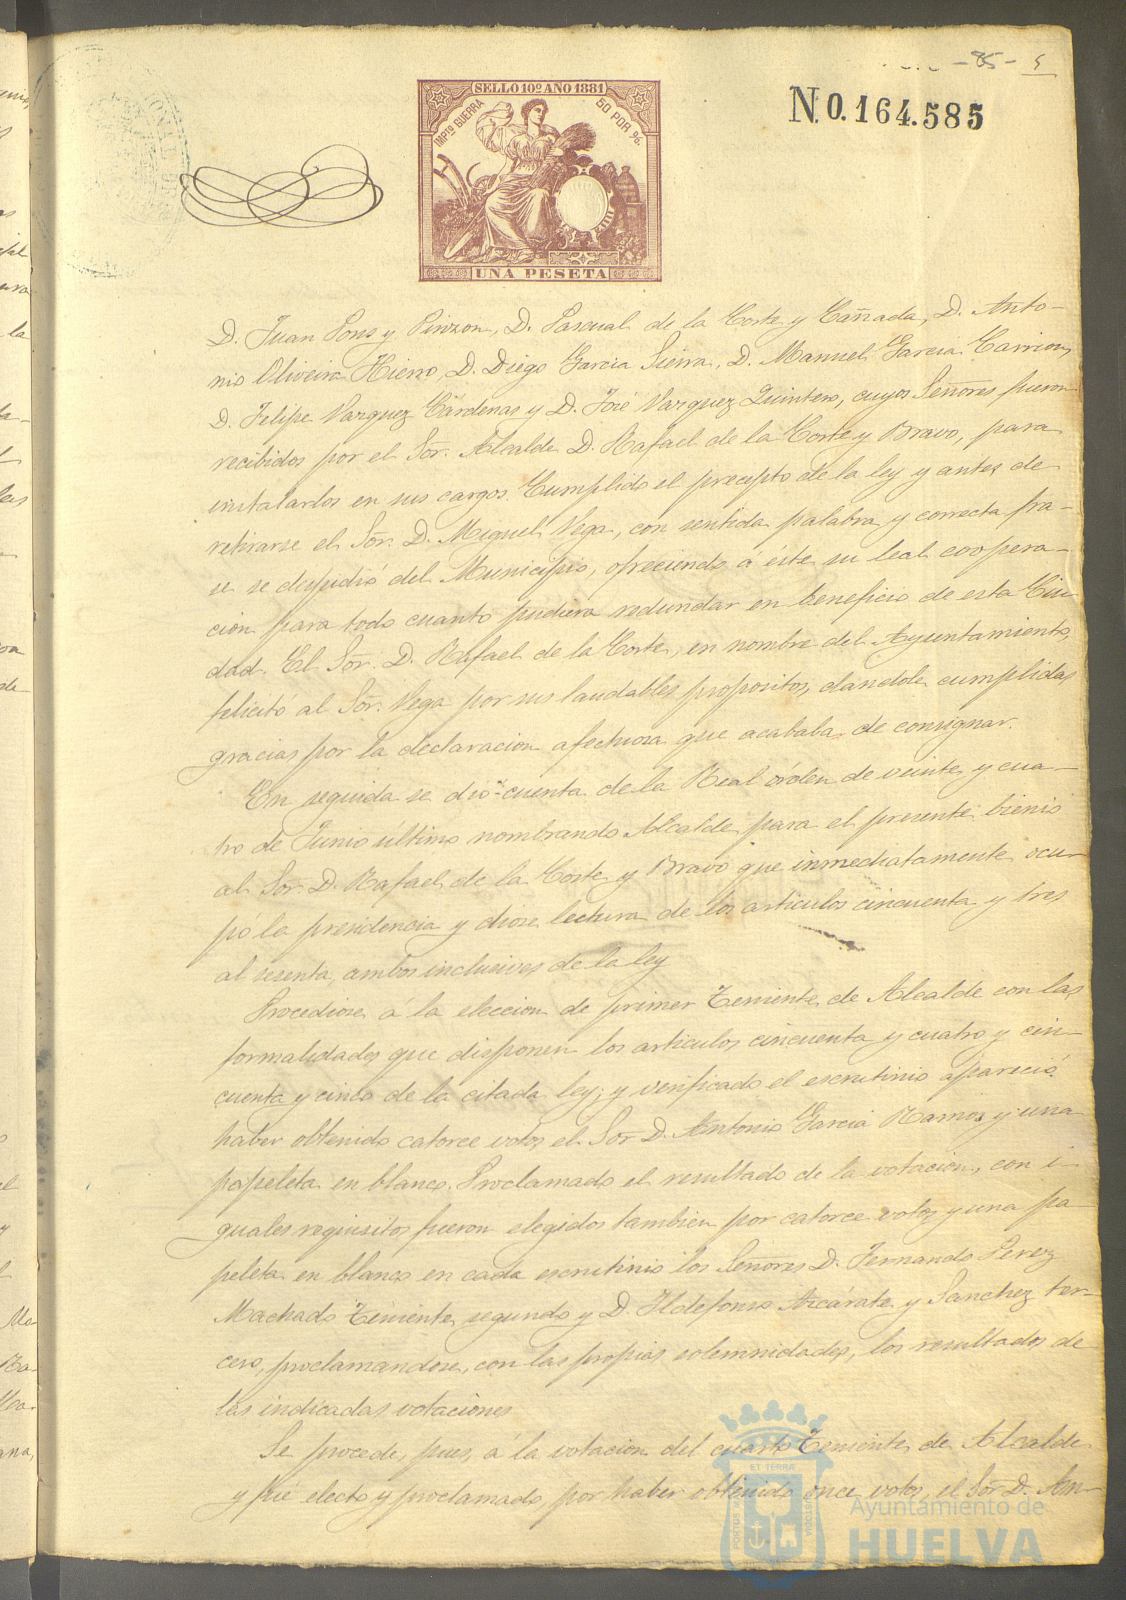 -85- 5
SELLO 10º AÑO 1881
IMPTO GUERRA
50 POR %.
N.0.164.585
UNA PESETA
D. Juan Pons y Pinzon, D. Pascual de la Corte y Cañada, D. Anto-
nio Oliveira Hierro, D. Diego Garcia Sierra, D. Manuel Garcia Carrion,
D. Felipe Vazquez Cárdenas y D. José Vazquez Quintero, cuyos Señores fueron
recibidos por el Sor. Alcalde D. Rafael de la Corte y Bravo, para
instalarlos en sus cargos. Cumplido el precepto de la ley y antes de
retirarse el Sor. D. Miguel Vega, con sentida palabra y correcta fra-
se se despidió del Municipio, ofreciendo á éste su leal coopera-
cion para todo cuanto pudiera redundar en beneficio de esta Ciu-
dad. El Sor. D. Rafael de la Corte, en nombre del Ayuntamiento,
felicitó al Sor. Vega por sus laudables propositos, dandole cumplidas
gracias por la declaracion afectuosa que acababa de consignar.
En seguida se dió cuenta de la Real órden de veinte y cua-
tro de Junio último nombrando Alcalde para el presente bienio
al Sor D. Rafael de la Corte y Bravo que inmediatamente ocu-
pó la presidencia y diose lectura de los articulos cincuenta y tres
al sesenta, ambos inclusives de la ley
Procediose á la eleccion de primer Teniente de Alcalde con las
formalidades que disponen los articulos cincuenta y cuatro y cin-
cuenta y cinco de la citada ley; y verificado el escrutinio apareció
haber obtenido catorce votos el Sor D. Antonio Garcia Ramos y una
papeleta en blanco. Proclamado el resultado de la votacion, con i-
guales requisitos fueron elegidos tambien por catorce votos y una pa-
peleta en blanco en cada escrutinio los Señores D. Fernando Perez
Machado Teniente segundo y D. Ildefonso Azcárate y Sanchez ter-
cero, proclamandose, con las propias solemnidades, los resultados de
las indicadas votaciones
Se procede, pues, á la votacion del cuarto Teniente de Alcalde
y fué electo y proclamado, por haber obtenido once votos, el Sor D. An-
ET TERRÆ
Ayuntamiento de
HUELVA